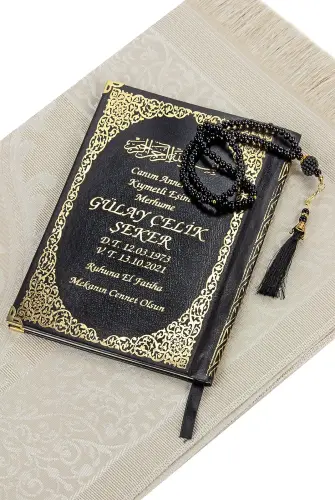 بسم الله الرحمن الرحيم
Canım Annem
Kıymetli Eşim
Merhume
GÜLAY ÇELİK
ŞEKER
D.T. 12.03.1973
V.T. 13.10.2021
Ruhuna El Fatiha
Mekanın Cennet Olsun